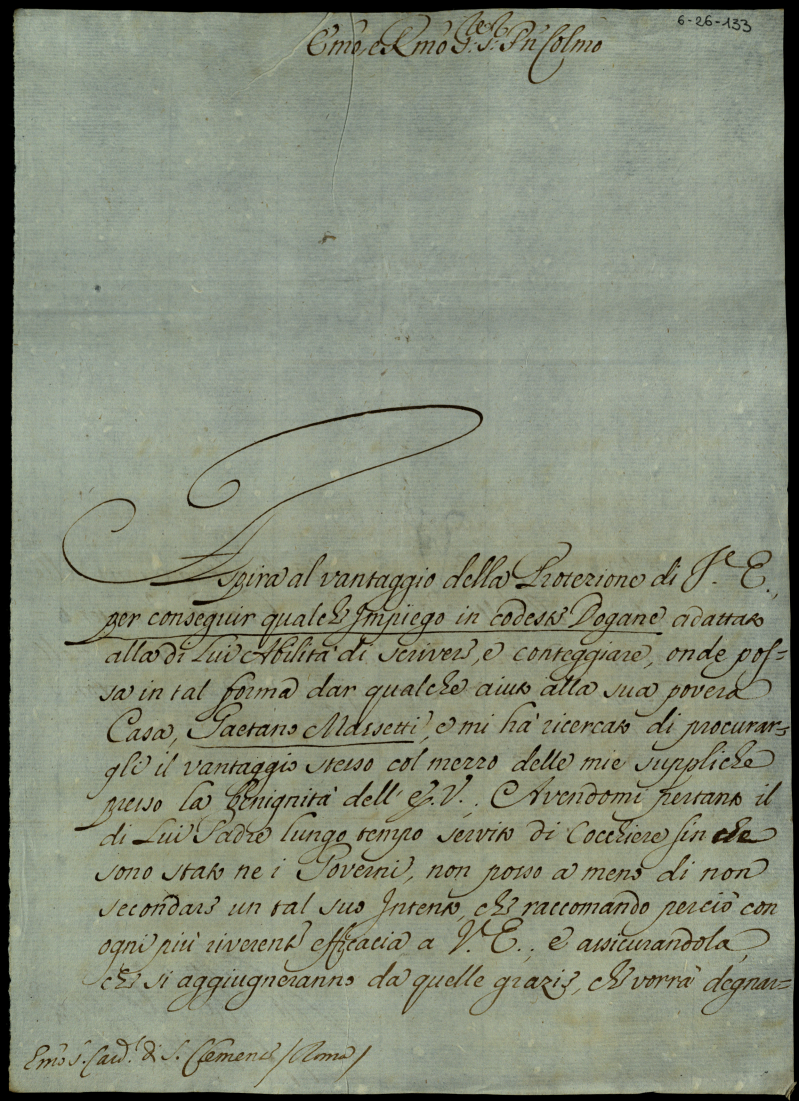 6-26-133
Emo, e Rmo Sig.r Sig.r Pñ Colmo
Aspira al vantaggio della Protezione di V.e E.,
per conseguir qualche Impiego in codeste Dogane adattato
alla di Lui Abilità di scrivere, e conteggiare, onde pos=
sa in tal forma dar qualche aiuto alla sua povera
Casa, Gaetano Massetti, e mi hà ricercato di procurar=
gli il vantaggio stesso col mezzo delle mie suppliche
presso la benignità dell' E.V.. Avendomi pertanto il
di Lui Padre lungo tempo servito di Cocchiere sin che
sono stato ne i Governi, non posso a meno di non
secondare un tal suo Intento, che raccomando perciò con
ogni più riverente efficacia a V.E., e assicurandola,
che si aggiugneranno da quelle grazie, che vorrà degnar=
Emo S. Card.l di S. Clemente /Roma/